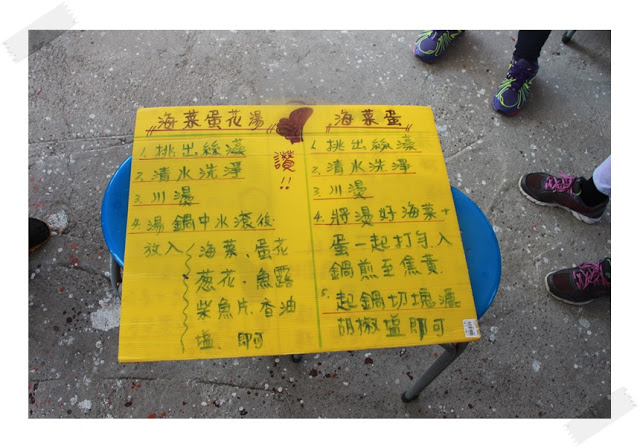 海菜蛋花湯
1. 挑出絲藻
2. 清水洗淨
3. 川燙
4. 湯鍋中水滾後
放入 海菜、蛋花
葱花、魚露
柴魚片、香油
塩、即可
讚!!
海菜蛋
1. 挑出絲藻
2. 清水洗淨
3. 川燙
4. 將燙好海菜+
蛋一起打勻,入
鍋煎至焦黃.
5. 起鍋切塊灑
胡椒塩即可